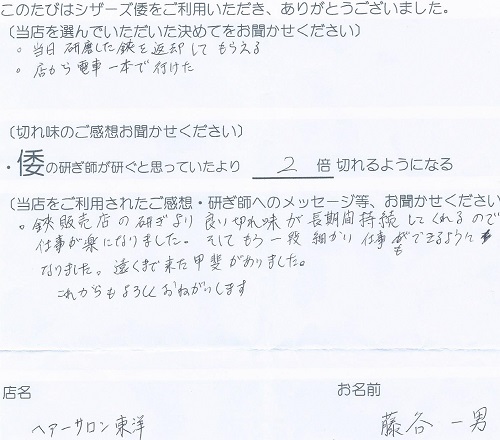 このたびはシザーズ倭をご利用いただき、ありがとうございました。
〔当店を選んでいただいた決めてをお聞かせください〕
。当日研磨した鋏を返却してもらえる
。店から電車一本で行けた
〔切れ味のご感想お聞かせください〕
・倭の研ぎ師が研ぐと思っていたより 2 倍 切れるようになる
〔当店をご利用されたご感想・研ぎ師へのメッセージ等、お聞かせください
。鋏販売店の研ぎより良い切れ味が長期間持続してくれるので
仕事が楽になりました。そしてもう一段細かい仕事もできるように
なりました。遠くまで来た甲斐がありました。
これからもよろしくおねがいします
店名 お名前
ヘアーサロン東洋 藤谷一男